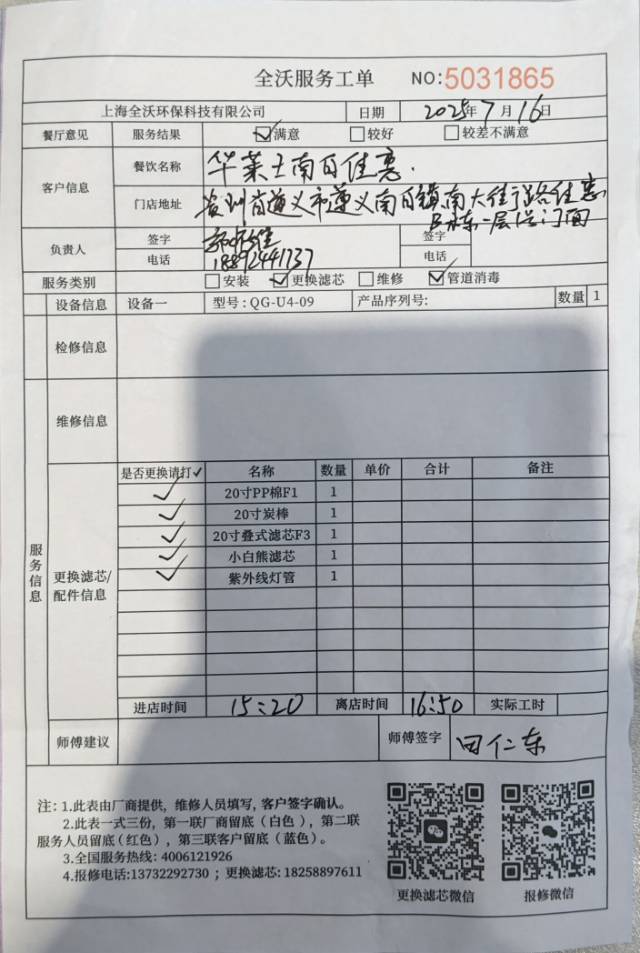 全沃服务工单 NO:5031865
上海全沃环保科技有限公司 日期 2025年7月16日
餐厅意见 服务结果 ☑满意 □较好 □较差不满意
客户信息 餐饮名称 华莱士南白佳惠.
门店地址 贵州省遵义市遵义南白镇南大街 路佳惠
一层 门面
负责人 签字 签字
电话 18892441737 电话
服务类别 □安装 ☑更换滤芯 □维修 ☑管道消毒
设备信息 设备一 型号:QG-U4-09 产品序列号: 数量 1
检修信息
维修信息
服务信息
更换滤芯/配件信息
是否更换请打✓ 名称 数量 单价 合计 备注
✓ 20寸PP棉F1 1
✓ 20寸炭棒 1
✓ 20寸叠式滤芯F3 1
✓ 小白熊滤芯 1
✓ 紫外线灯管 1
进店时间 15:20 离店时间 16:50 实际工时
师傅建议 师傅签字 田仁东
注: 1.此表由厂商提供, 维修人员填写, 客户签字确认。
2.此表一式三份, 第一联厂商留底(白色), 第二联
服务人员留底(红色), 第三联客户留底(蓝色)。
3.全国服务热线: 4006121926
4.报修电话:13732292730 ; 更换滤芯: 18258897611
更换滤芯微信 报修微信